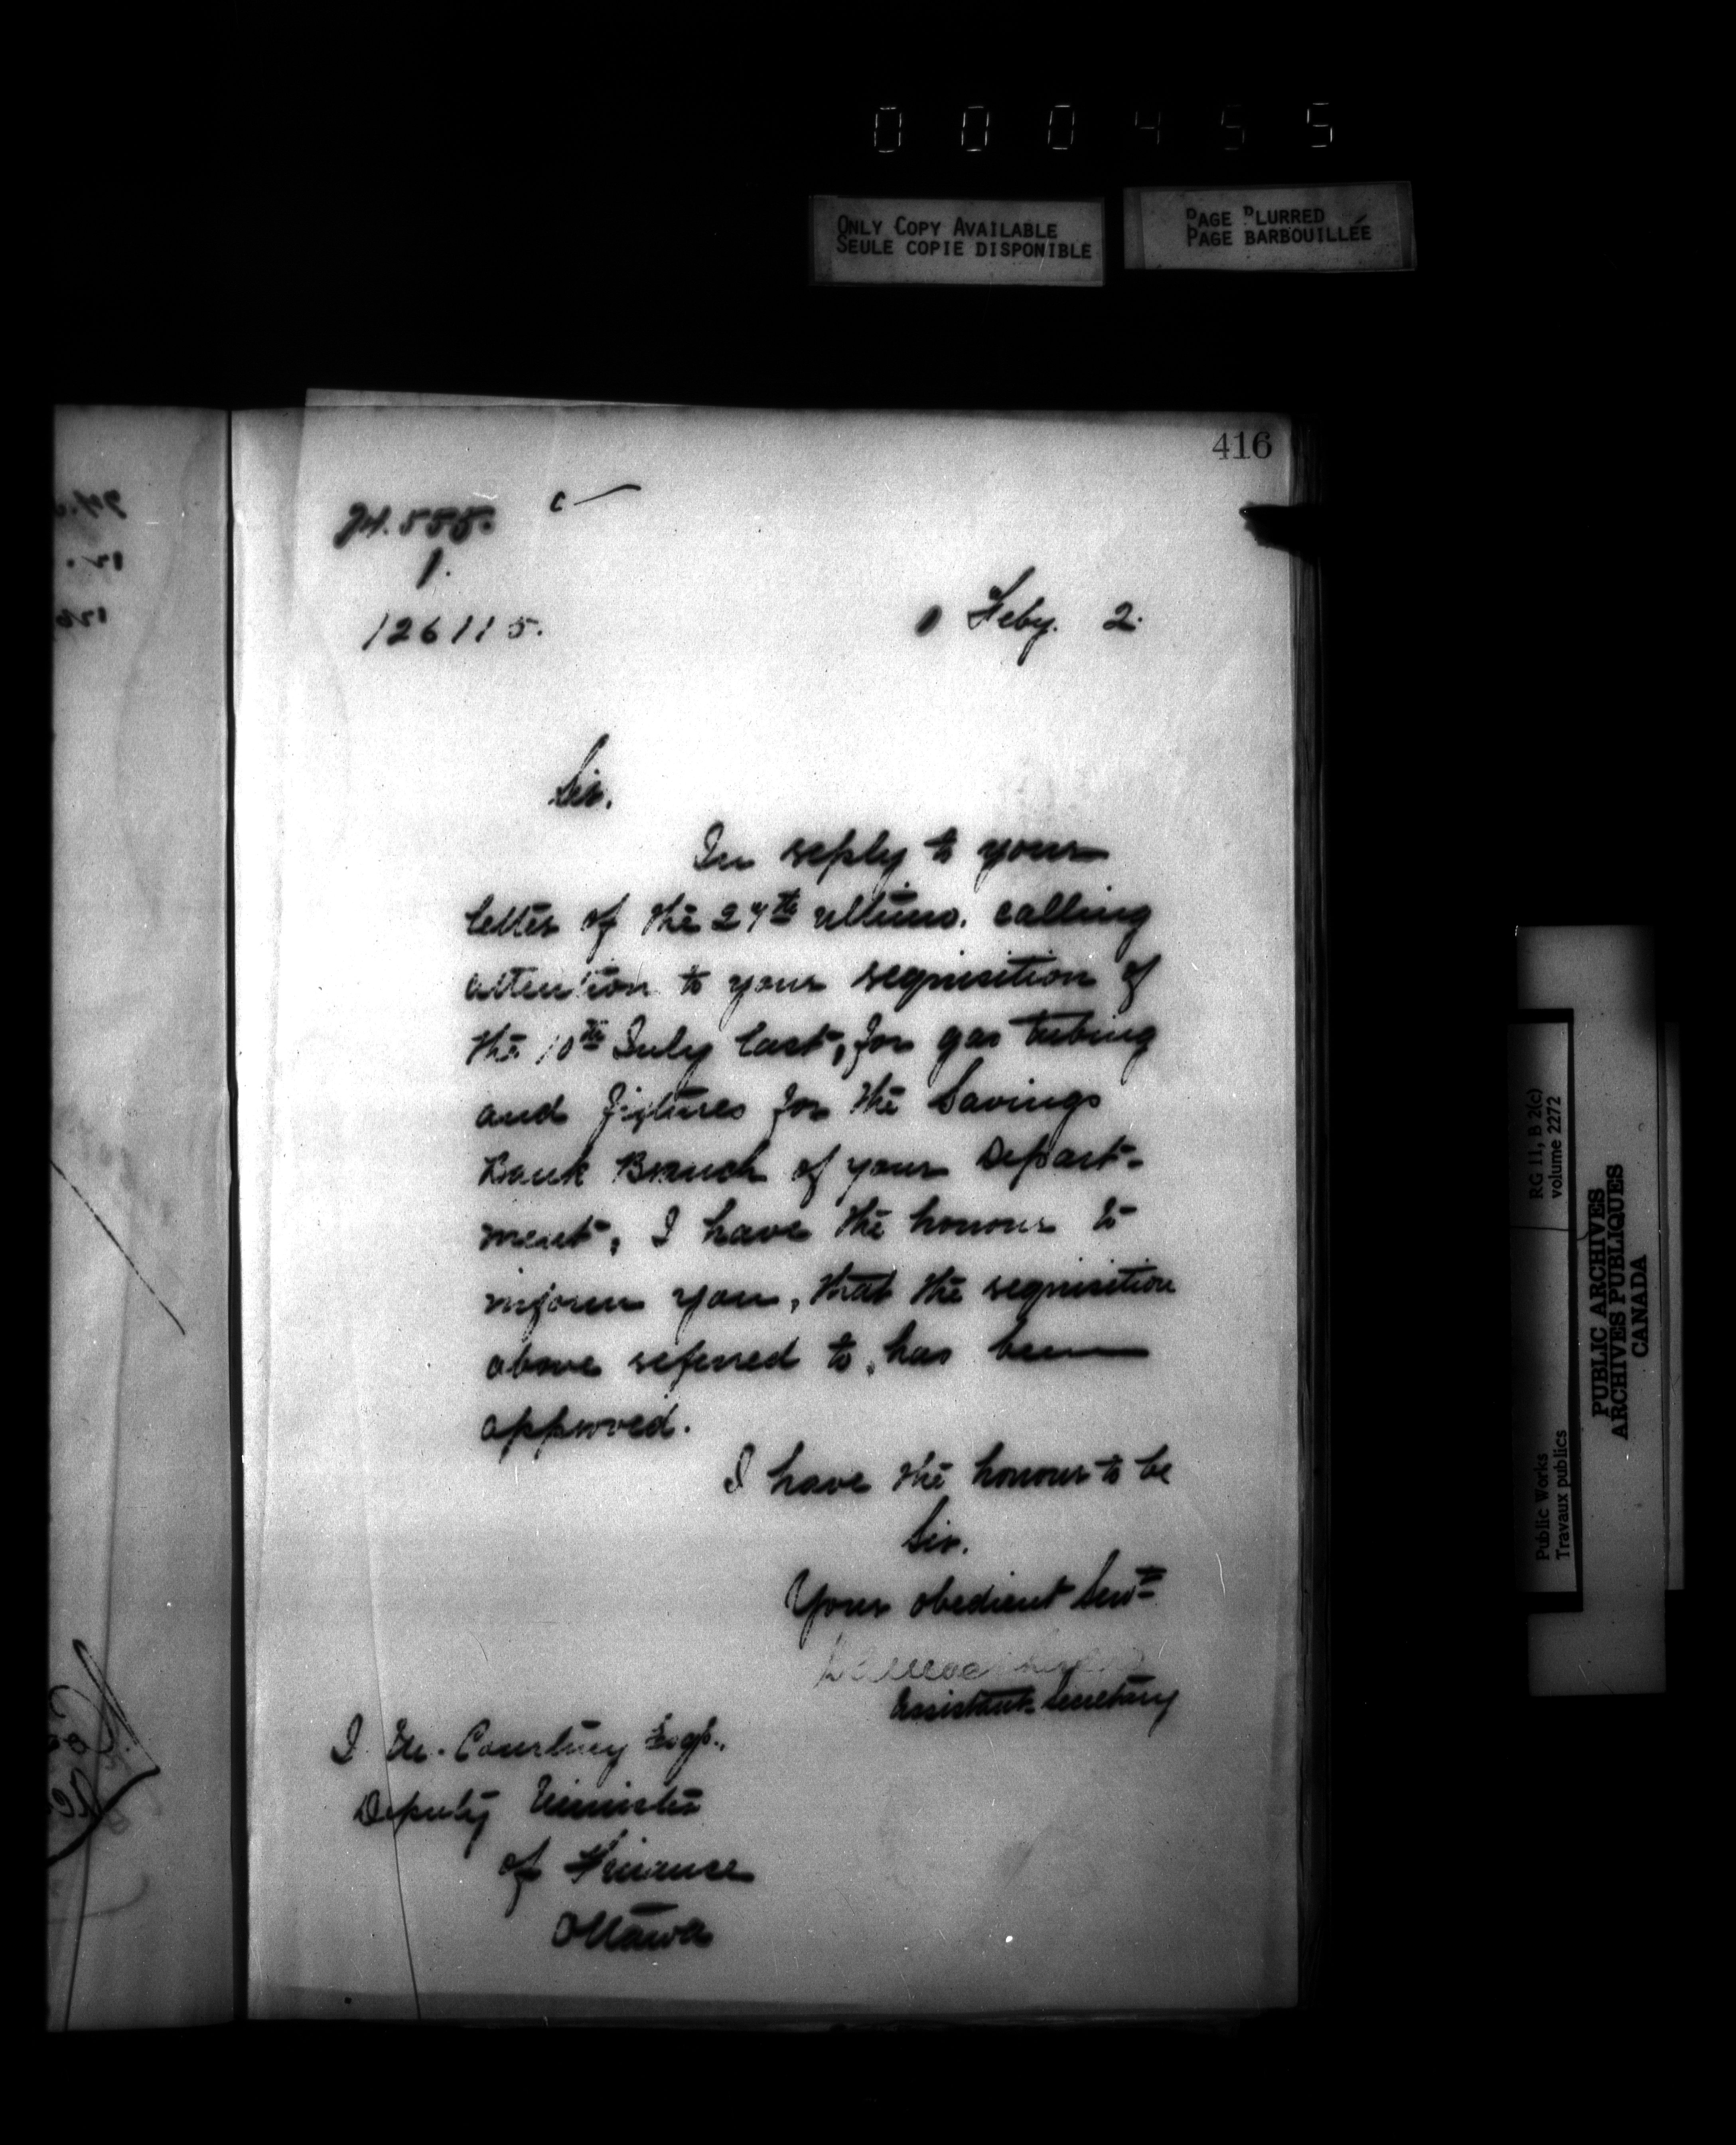 000455
ONLY COPY AVAILABLE
SEULE COPIE DISPONIBLE
PAGE BLURRED
PAGE BARBOUILLÉE
416
24.555.
1.
126115.
Feby. 2.
Sir.
In reply to your
letter of the 27th ultimo. calling
attention to your requisition of
the 10th July last, for gas tubing
and fixtures for the Savings
Bank Branch of your Depart-
ment, I have the honour to
inform you, that the requisition
above referred to, has been
approved.
I have the honour to be
Sir.
Your obedient Servt
Assistant Secretary
J. M. Courtney Esqr.,
Deputy Minister
of Finance
Ottawa
RG 11, B 2(c)
volume 2272
Public Works
Travaux publics
PUBLIC ARCHIVES
ARCHIVES PUBLIQUES
CANADA